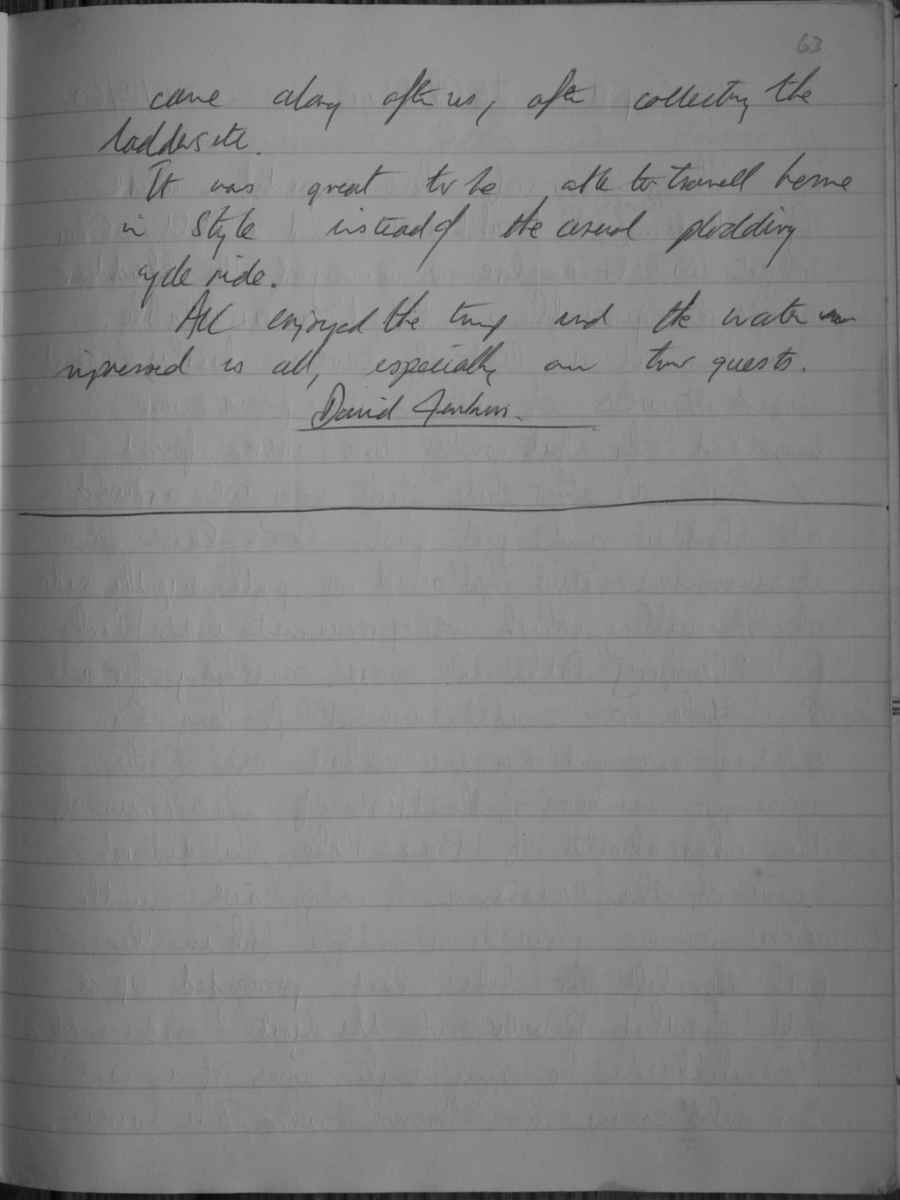 63
came along after us, after collecting the
ladders etc.
It was great to be able to travell home
in style instead of the usual plodding
cycle ride.
All enjoyed the trip and the water
impressed us all, especially our two guests.
David Jenkins.